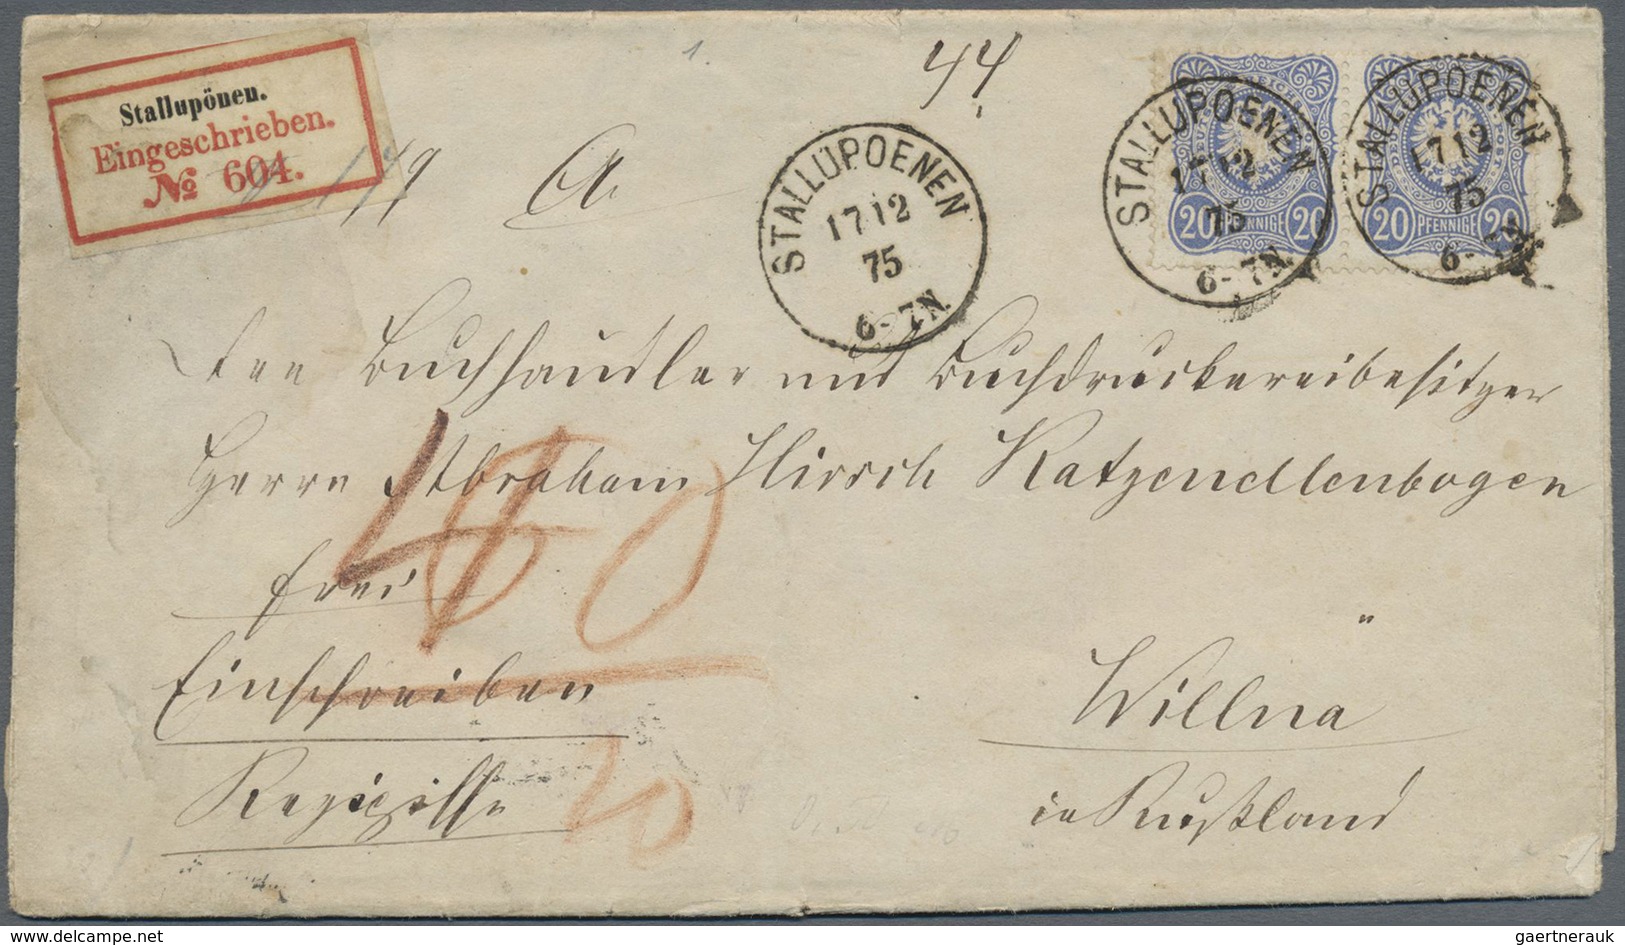 Stallupönen.
Eingeschrieben.
№ 604.
44
A.
STALLUPOENEN
17 12
75
6-7N.
STALLUPOENEN
17 12
75
6-7N.
STALLUPOENEN
17 12
75
6-
20 PFENNIGE 20
20 PFENNIGE 20
Buchhändler und Buchdruckereibesitzer
Herrn Abraham Hirsch Katzendlenbogen
frei
Einschreiben
Willna
in Rußland
20
delcampe.net
gaertnerauk